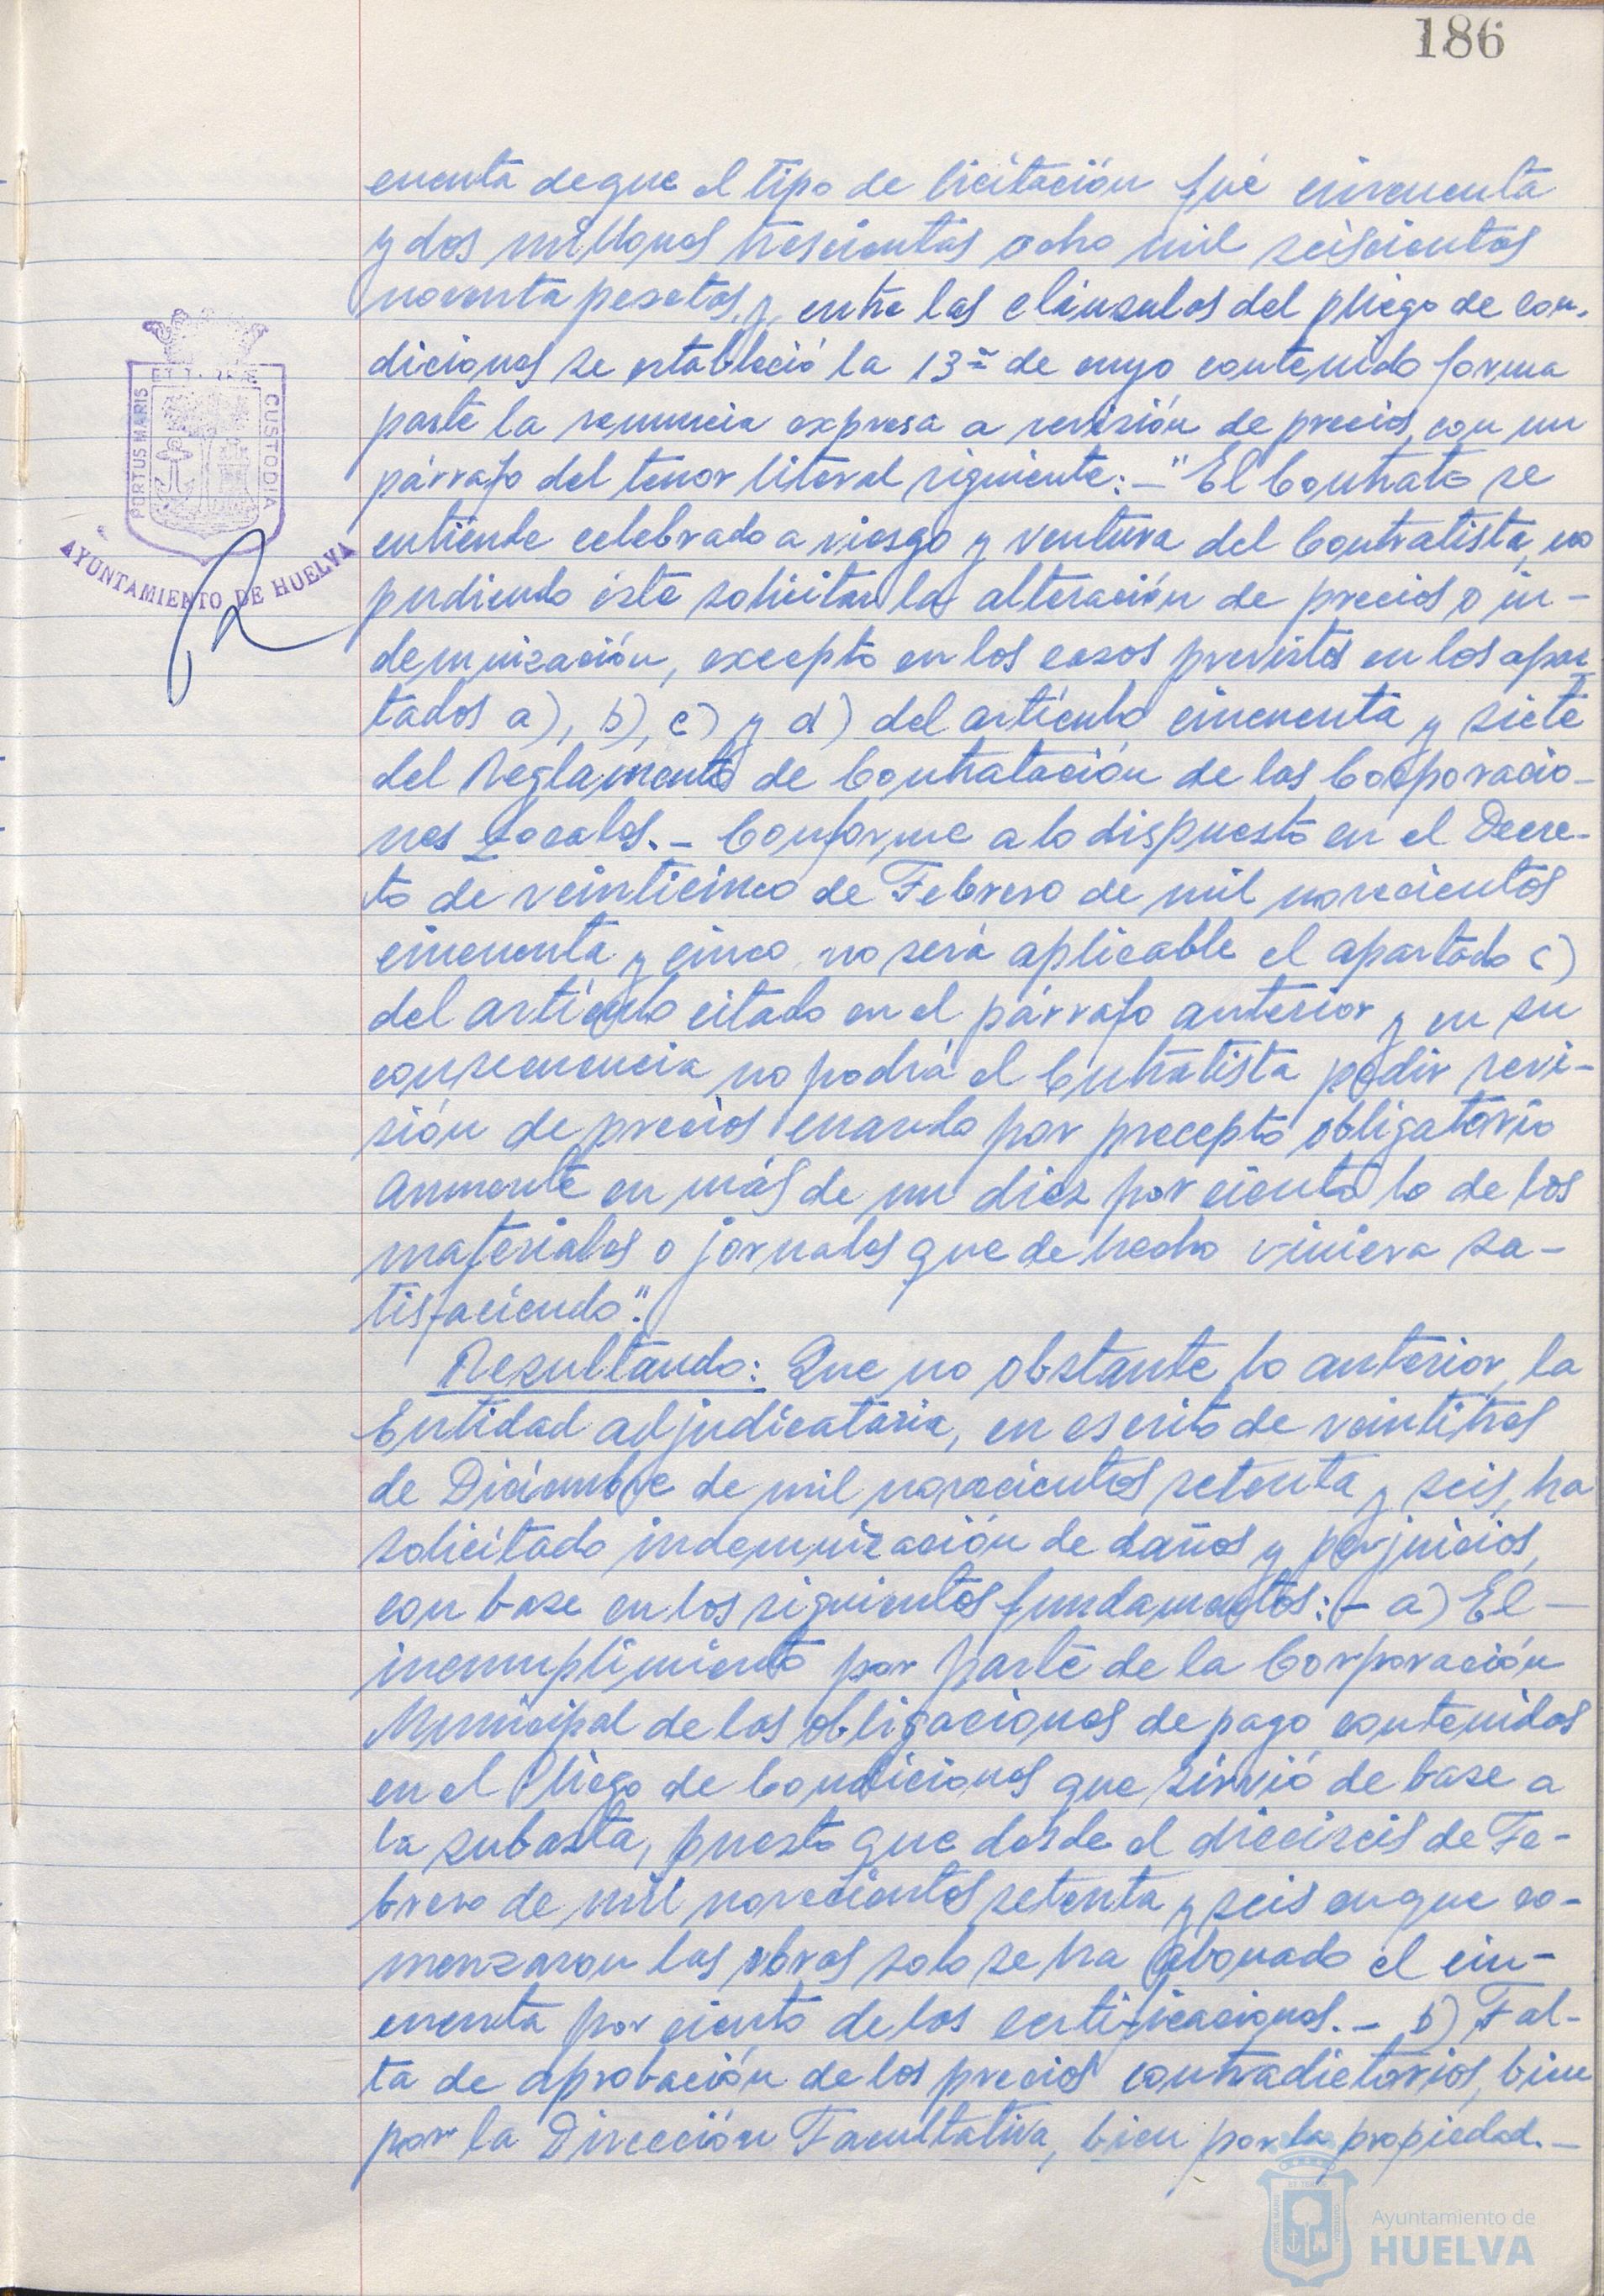 186
cuenta de que el tipo de licitación fué cincuenta
y dos millones trescientas ocho mil seiscientas
noventa pesetas, y, entre las cláusulas del pliego de con-
diciones se estableció la 13ª de cuyo contenido forma
parte la renuncia expresa a revisión de precios, con un
párrafo del tenor literal siguiente: - "El Contrato se
entiende celebrado a riesgo y ventura del Contratista, no
pudiendo éste solicitar la alteración de precios o in-
demnización, excepto en los casos previstos en los apar
tados a), b), c) y d) del artículo cincuenta y siete
del Reglamento de Contratación de las Corporacio-
nes Locales. - Conforme a lo dispuesto en el Decre-
to de veinticinco de Febrero de mil novecientos
cincuenta y cinco no será aplicable el apartado c)
del artículo citado en el párrafo anterior y en su
consecuencia no podrá el Contratista pedir revi-
sión de precios cuando por precepto obligatorio
aumente en más de un diez por ciento lo de los
materiales o jornales que de hecho viniera sa-
tisfaciendo".
Resultando: Que no obstante lo anterior, la
Entidad adjudicataria, en escrito de veintitres
de Diciembre de mil novecientos setenta y seis, ha
solicitado indemnización de daños y perjuicios,
con base en los siguientes fundamentos: - a) El -
incumplimiento por parte de la Corporación
Municipal de las obligaciones de pago contenidas
en el Pliego de Condiciones que sirvió de base a
la subasta, puesto que desde el dieciseis de Fe-
brero de mil novecientos setenta y seis en que co-
menzaron las obras solo se ha abonado el cin-
cuenta por ciento de las certificaciones. - b) Fal-
ta de aprobación de los precios contradictorios, bien
por la Dirección Facultativa, bien por la propiedad. -
PORTUS MARIS
ET TERRE
CUSTODIA
AYUNTAMIENTO DE HUELVA
Ayuntamiento de
HUELVA